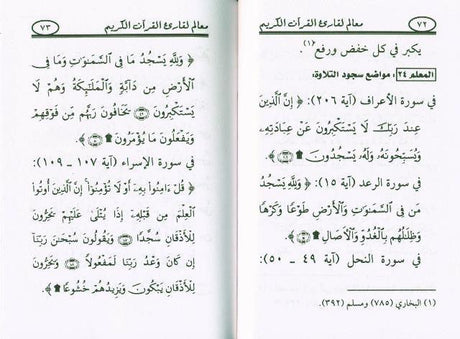 ٧٢
معالم لقارئ القرآن الكريم
يكبر في كل خفض ورفع(١).
المعلم ٢٤: مواضع سجود التلاوة:
في سورة الأعراف (آية ٢٠٦): ﴿ إِنَّ ٱلَّذِينَ
عِندَ رَبِّكَ لَا يَسْتَكْبِرُونَ عَنْ عِبَادَتِهِۦ
وَيُسَبِّحُونَهُۥ وَلَهُۥ يَسْجُدُونَ ۩ ﴾.
في سورة الرعد (آية ١٥): ﴿ وَلِلَّهِ يَسْجُدُ
مَن فِى ٱلسَّمَٰوَٰتِ وَٱلْأَرْضِ طَوْعًا وَكَرْهًا
وَظِلَٰلُهُم بِٱلْغُدُوِّ وَٱلْءَاصَالِ ۩ ﴾.
في سورة النحل (آية ٤٩ - ٥٠):
(١) البخاري (٧٨٥) ومسلم (٣٩٢).
معالم لقارئ القرآن الكريم
٧٣
﴿ وَلِلَّهِ يَسْجُدُ مَا فِى ٱلسَّمَٰوَٰتِ وَمَا فِى
ٱلْأَرْضِ مِن دَآبَّةٍ وَٱلْمَلَٰٓئِكَةُ وَهُمْ لَا
يَسْتَكْبِرُونَ ۝ يَخَافُونَ رَبَّهُم مِّن فَوْقِهِمْ
وَيَفْعَلُونَ مَا يُؤْمَرُونَ ۩ ﴾.
في سورة الإسراء (آية ١٠٧ - ١٠٩):
﴿ قُلْ ءَامِنُوا۟ بِهِۦٓ أَوْ لَا تُؤْمِنُوٓا۟ إِنَّ ٱلَّذِينَ أُوتُوا۟
ٱلْعِلْمَ مِن قَبْلِهِۦٓ إِذَا يُتْلَىٰ عَلَيْهِمْ يَخِرُّونَ
لِلْأَذْقَانِ سُجَّدًا ۝ وَيَقُولُونَ سُبْحَٰنَ رَبِّنَآ
إِن كَانَ وَعْدُ رَبِّنَا لَمَفْعُولًا ۝ وَيَخِرُّونَ
لِلْأَذْقَانِ يَبْكُونَ وَيَزِيدُهُمْ خُشُوعًا ۩ ﴾.